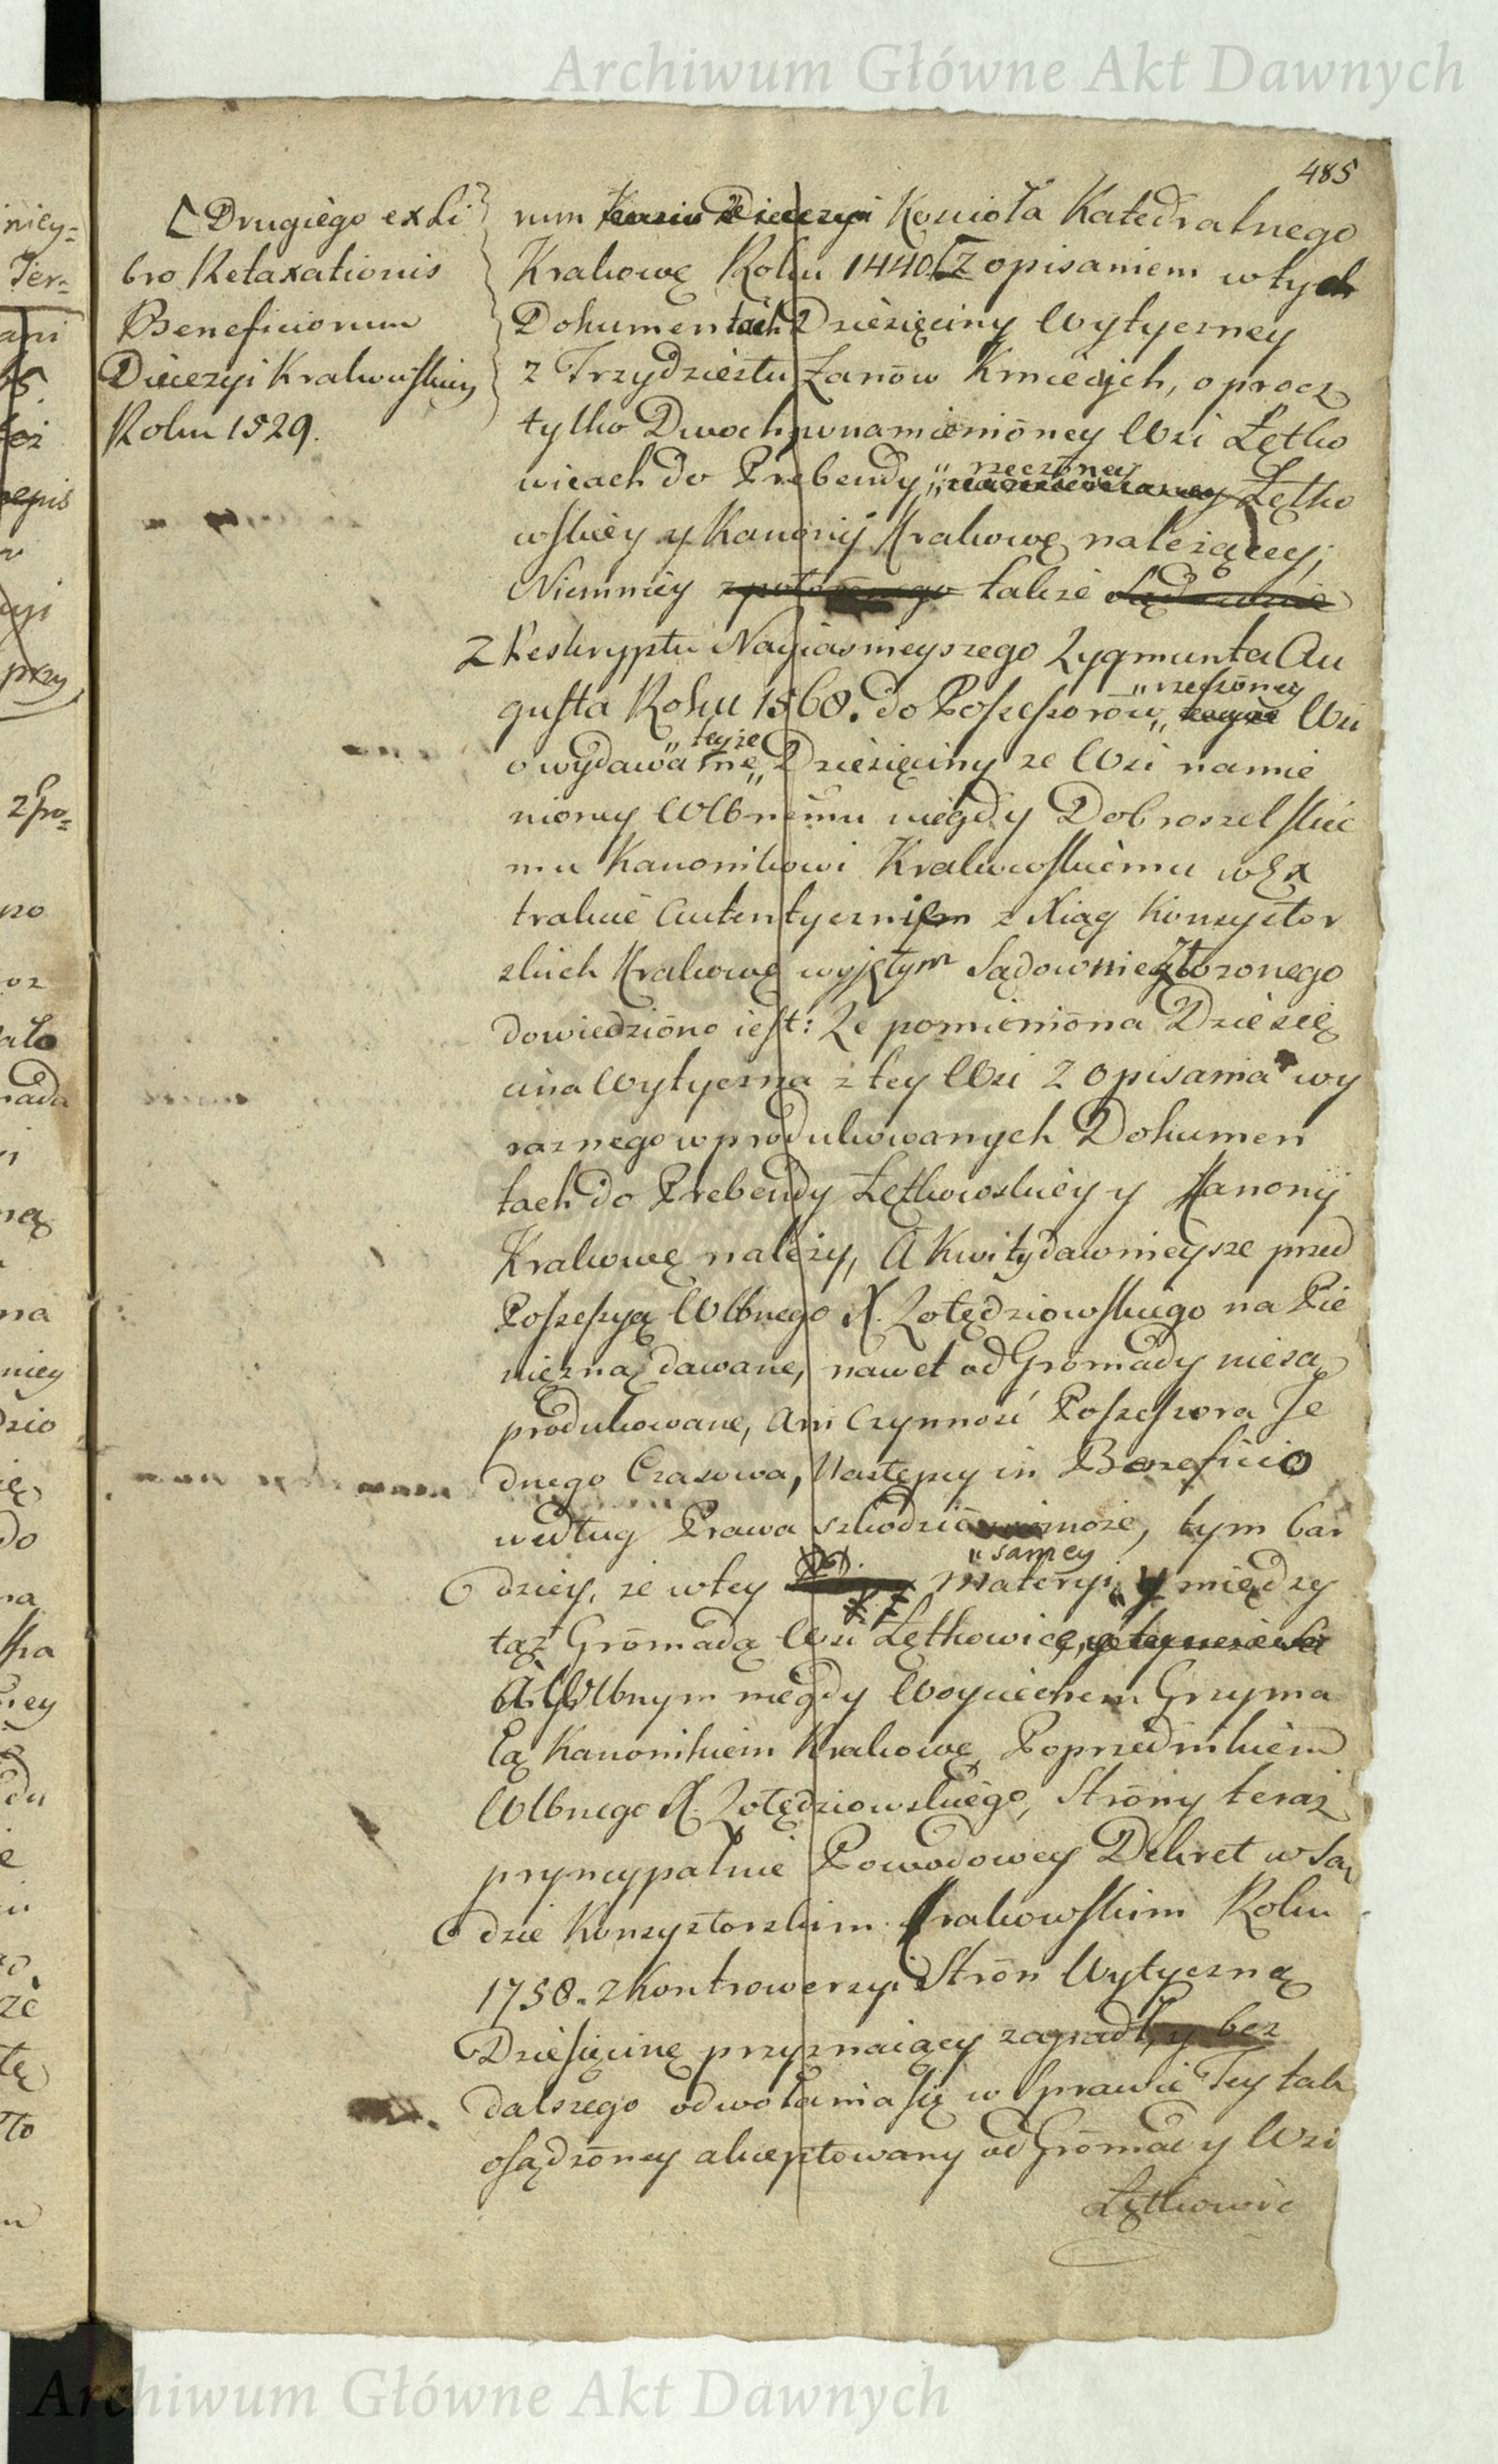 Archiwum Główne Akt Dawnych
485
[Drugiego ex Li
bro Retaxationis
Beneficiorum
Diecezyi Krakowskiey
Roku 1529.
rum Diecezyi Kościoła Katedralnego
Krakowę Roku 1440. [z opisaniem w tych
Dokumentach Dziesięciny Wytyczney
z Trzydziestu Łanów Kmiecych, oprocz
tylko Dwoch w namienióney Wsi Łętko
wicach do Prebendy „rzeczóney Łętko
wskiey y Kanonij Krakowę należącey;
Niemniey także
z Reskryptu Nayiasnieyszego Zygmunta Au
gusta Roku 1568. do Possessorów „rzeczóney Wsi
o wydawanie „teyże Dziesięciny ze Wsi namie
nioney Wlbnemu niegdy Dobroszelskie
mu Kanonikowi Krakowskiemu w Ex
trakcie Autentycznym z Xiąg Konsystor
skich Krakowę wyjętym Sądownie złozonego
dowiedzióno iest: Ze pomienióna Dziesię
cina Wytyczna z tey Wsi z opisania wy
raznego w produkowanych Dokumen
tach do Prebendy Łętkowskiey y Kanonij
Krakowę należy, A Kwity dawnieysze przed
Possessyą Wlbnego X. Zołędziowskiego na Pie
niężną dawane, nawet od Gromady niesą
produkowane, Ani Czynność Possessora Je
dnego Czasowa, Następcy in Beneficio
według Prawa szkodzić niemoże, tym bar
dziey, że w tey „samey Materyi y między
tąż Gromadą Wsi Łętkowice,
A Wlbnym niegdy Woyciechem Grzyma
łą Kanonikiem Krakowę Poprzednikiem
Wlbnego X. Zołędziowskiego, Stróny teraz
pryncypalnie Powodowey Dekret w Są
dzie Konsystorskim Krakowskim Roku
1758. z Kontrowersyi Strón Wytyczną
Dziesięcinę przyznaiący zapadł, y bez
dalszego odwołania się w Sprawie Tey tak
osądzóney akceptowany od Gromady Wsi
Łętkowic
Archiwum Główne Akt Dawnych